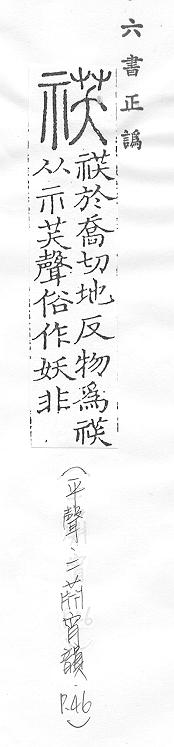 六書正譌
䄏
䄏於喬切地反物爲䄏
从示芺聲俗作妖非
(平聲·二蕭宵韻 P.46)